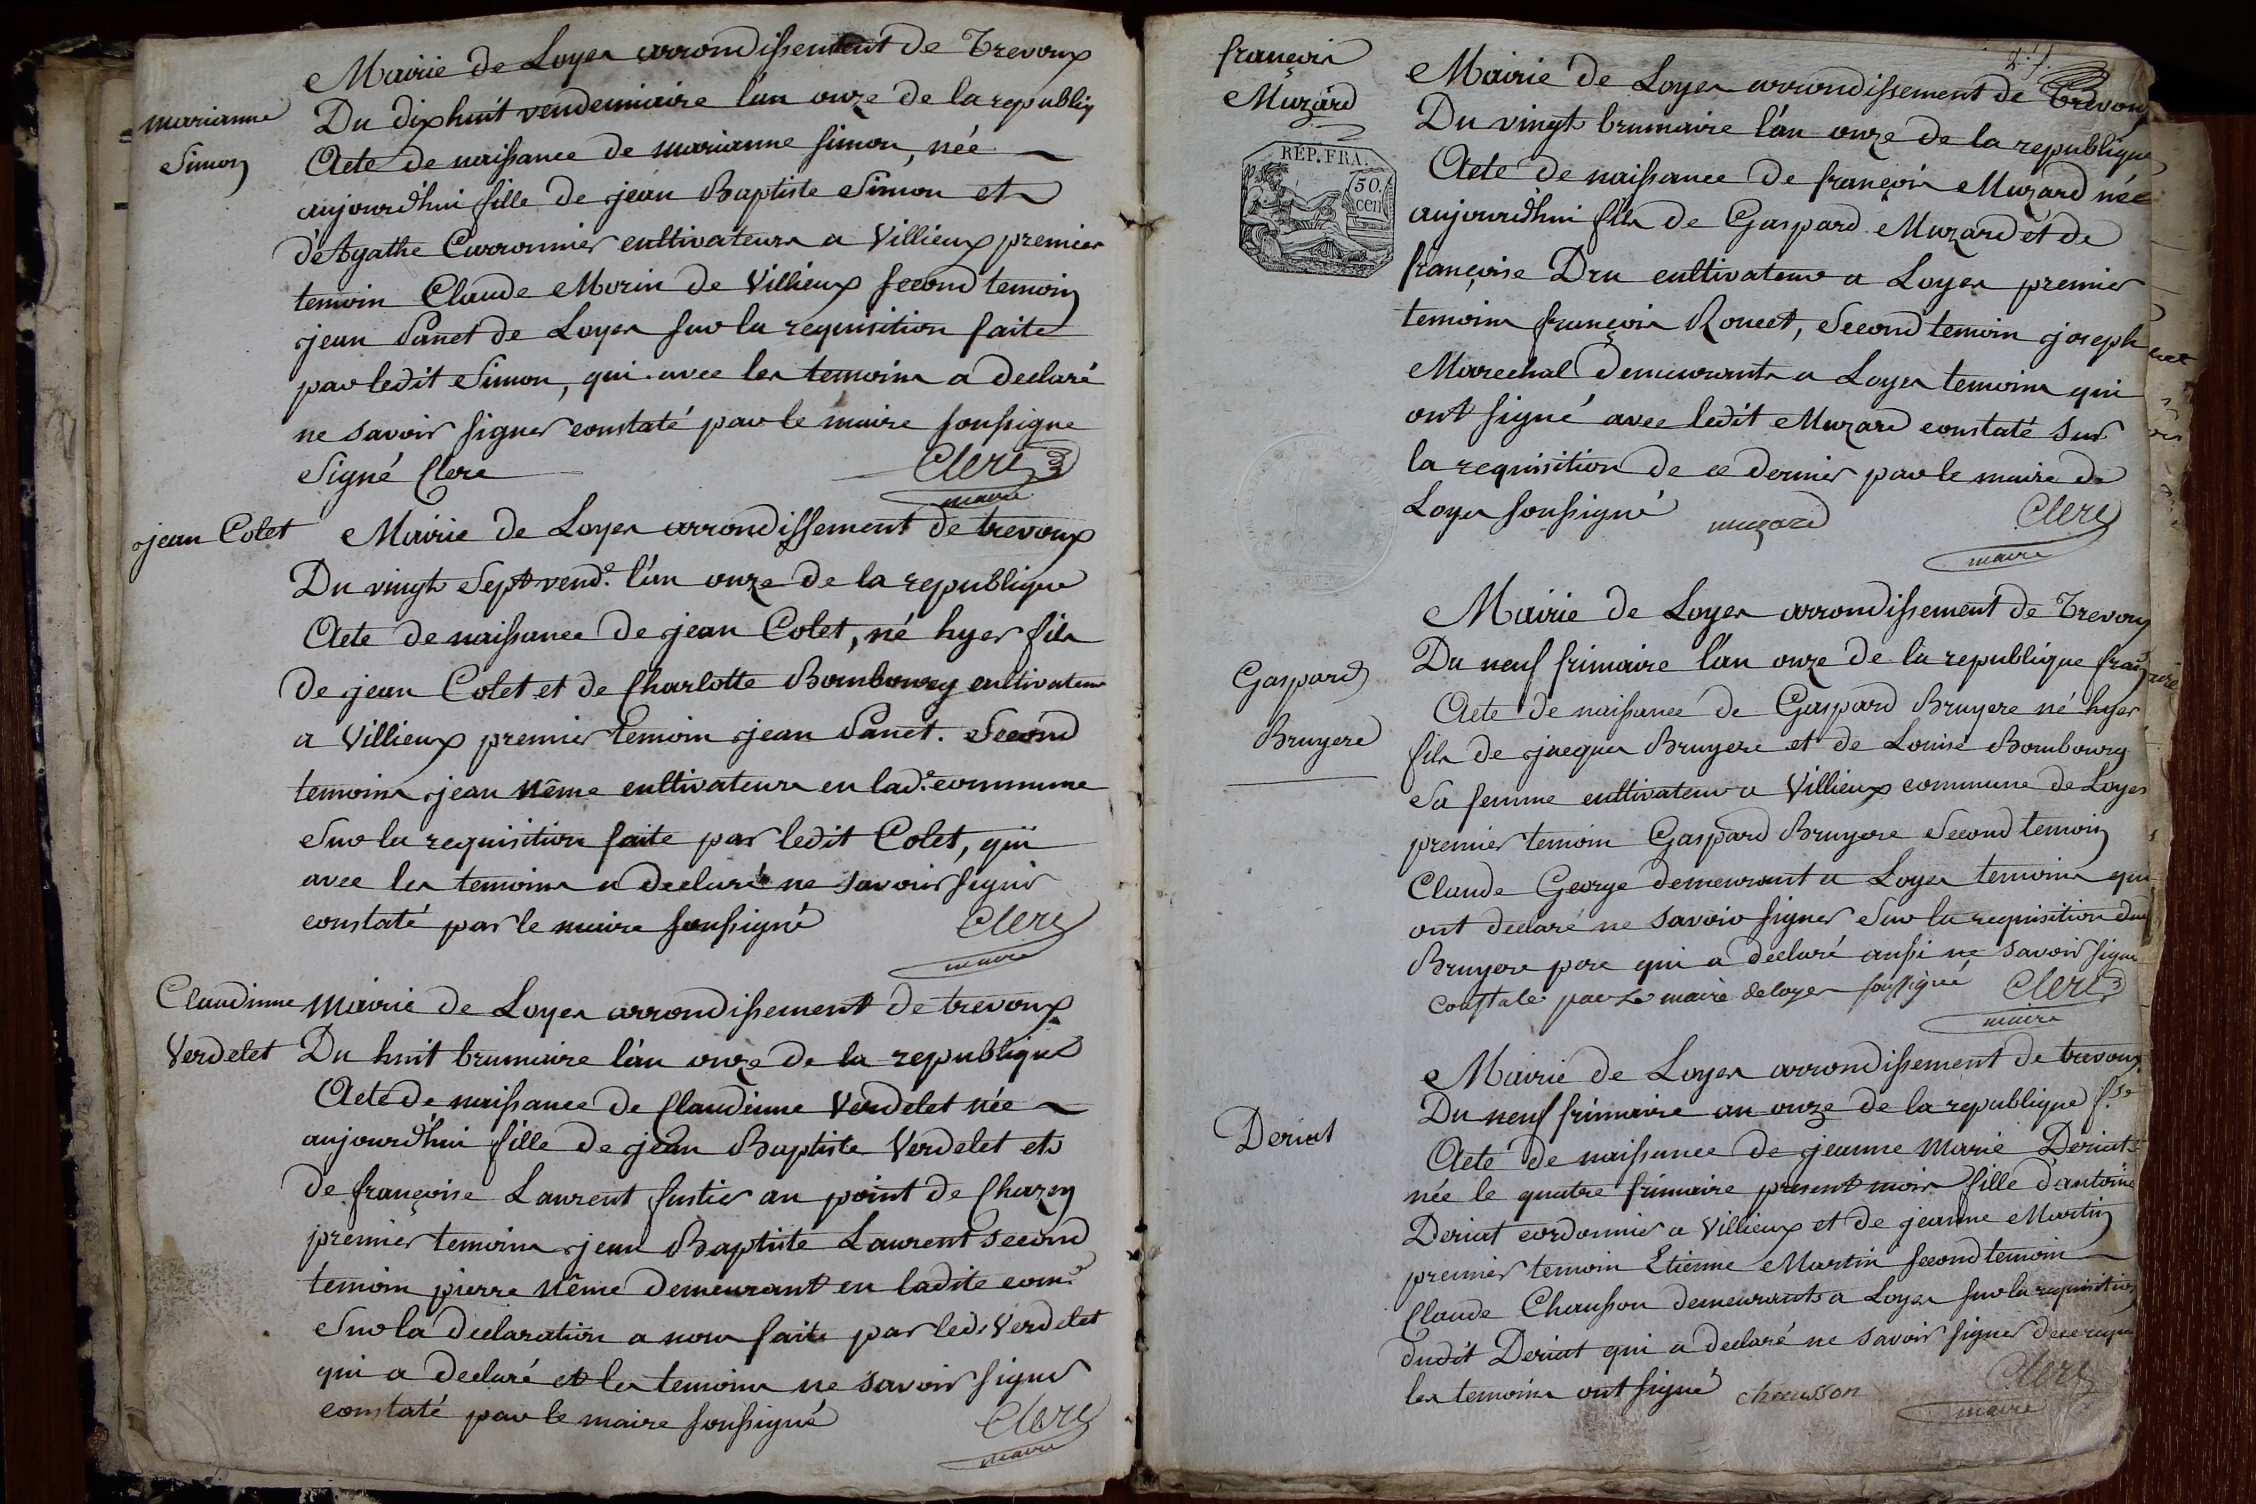 Mairie de Loyes arrondissement de Trevoux
marianne
Simon
Du dix huit vendemiaire l'an onze de la republiq
Acte de naissance de marianne simon, née
aujourd'hui fille de jean Baptiste Simon et
d'Agathe Curronnier cultivateurs a Villieux premier
temoin Claude Morin de Villieux second temoin
jean Panet de Loyes sur la requisition faite
par ledit Simon, qui avec les temoins a declaré
ne savoir signer constaté par le maire soussigne
Signé Clerc Clerc
maire
jean Colet
Mairie de Loyes arrondissement de trevoux
Du vingt Sept vend.e l'an onze de la republique
Acte de naissance de jean Colet, né hyer fils
de jean Colet et de Charlotte Bombourg cultivateur
a Villieux premier temoin jean Panet. Second
temoins jean Même cultivateurs en lad.e commune
Sur la requisition faite par ledit Colet, qui
avec les temoins a declaré ne savoir signer
constaté par le maire soussigné Clerc
maire
Claudinne
Verdelet
Mairie de Loyes arrondissement de trevoux
Du huit brumaire l'an onze de la republique
Acte de naissance de Claudinne Verdelet née
aujourd'hui fille de jean Baptiste Verdelet et
de françoise Laurent fustier au point de Chazey
premier temoins jean Baptiste Laurent second
temoin pierre Même demeurant en ladite com.e
Sur la declaration a nous faite par led. Verdelet
qui a declaré et les temoins ne savoir signer
constaté par le maire soussigné Clerc
maire
françois
Muzard
REP. FRA.
50.
cen
Mairie de Loyes arrondissement de Trevoux
Du vingt brumaire l'an onze de la republique
Acte de naissance de françois Muzard née
aujourd'hui fils de Gaspard Muzard et de
françoise Dru cultivateur a Loyes premier
temoins françois Rouet, Second temoin joseph
Marechal demeurants a Loyes temoins qui
ont signé avec ledit Muzard constaté sur
la requisition de ce dernier par le maire de
Loyes soussigné muzard Clerc
maire
Gaspard
Bruyere
Mairie de Loyes arrondissement de Trevoux
Du neuf frimaire l'an onze de la republique fran
Acte de naissance de Gaspard Bruyere né hyer
fils de jacques Bruyere et de Louise Bombourg
Sa femme cultivateur a Villieux commune de Loyes
premier temoin Gaspard Bruyere Second temoin
Claude George demeurant a Loyes temoins qui
ont declaré ne savoir signer Sur la requisition dud
Bruyere pere qui a declaré aussi ne savoir signer
constaté par Le maire de loyes soussigné Clerc
maire
Deriat
Mairie de Loyes arrondissement de trevoux
Du neuf frimaire an onze de la republique f.se
Acte de naissance de jeanne Marie Deriat
née le quatre frimaire present mois fille d'antoine
Deriat cordonnier a Villieux et de jeanne Martin
premier temoin Etienne Martin second temoin
Claude Chausson demeurants a Loyes sur la requisition
dudit Deriat qui a declaré ne savoir signer de ce requis
les temoins ont signé chausson Clerc
maire